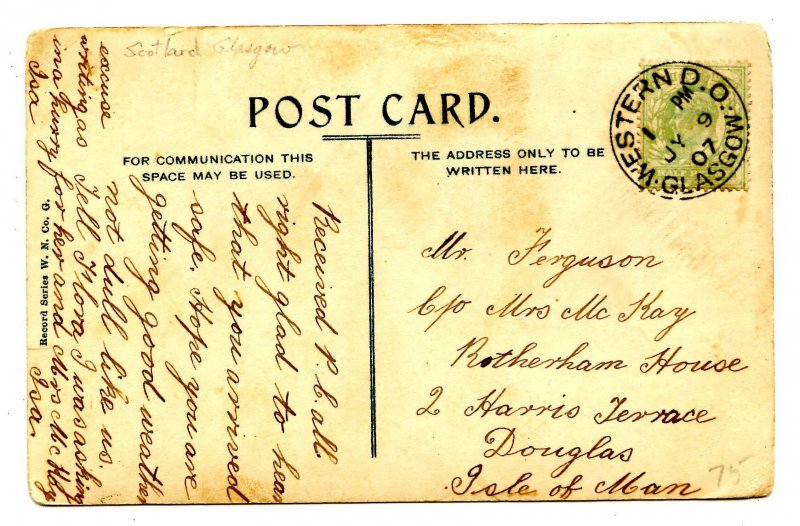 Scotland Glasgow
POST CARD.
FOR COMMUNICATION THIS
SPACE MAY BE USED.
THE ADDRESS ONLY TO BE
WRITTEN HERE.
WESTERN D.O. GLASGOW
1 PM
JY 9
07
HALF
Received P.C all
right glad to hear
that you arrived
safe. Hope you are
getting good weather
not dull like us.
Tell Flora I was asking
for her and Mrs McKay
Isa.
excuse
writing as
in a hurry
Isa
Record Series W. N. Co. G.
Mr. Ferguson
C/o Mrs Mc Kay
Rotherham House
2 Harris Terrace
Douglas
Isle of Man
75